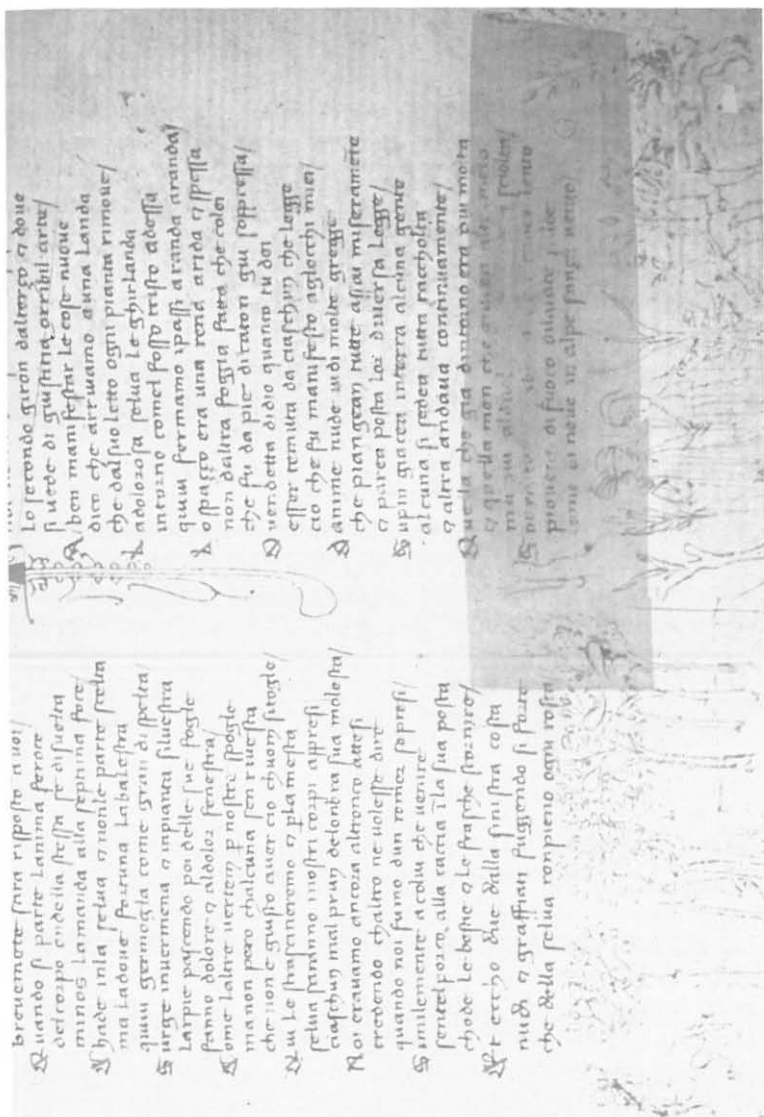 breuemēte sara risposto a uoi/
Quando si parte lanima ferore
delcorpo ondella stessa se disuelta
minos lamanda alla septima fore/
Chade inla selua & nonle parte scelta
ma ladoue fortuna labalestra
quiui germoglia come gran dispelta
Surge inuermena & inpianta siluestra
larpie pascendo poi delle sue fogle
fanno dolore & aldolor fenestra/
Come laltre uerrem p nostre spogle
manon pero chalcuna sen riuesta
che non e giusto auer cio chuom sitogle
Qui le strascineremo & plamesta
selua saranno inostri corpi appesi
ciaschun malprun delonbra sua molesta/
Noi erauamo ancora altronco attesi
credendo chaltro ne uolesse dire
quando noi fumo dun romor sopresi/
Similemente acolui che uenire
sentelporco alla caccia ī la sua posta
chode le bestie & le frasche stormire/
Et eccho due dalla sinistra costa
nudi & graffiati fuggendo si forte
che della selua ronpieno ogni rosta
lo secondo giron dalterço & doue
si uede di giustitia orribil arte/
A ben manifestar le cose nuoue
dico che arriuamo auna landa
che dalsuo letto ogni pianta rimoue/
adolorosa selua le ghirlanda
intorno comel fosso tristo adessa
quiui fermamo ipassi aranda aranda/
ospaçço era una rena arida & spessa
non daltra foggia fatta che colei
che fu da pie dicaton gia soppressa/
O uendetta didio quanto tu dei
esser temuta daciaschun che legge
cio che fu manifesto aglocchi miei/
D anime nude uidi molte gregge
che piangean tutte assai miseramēte
& parea posta lor diuersa legge/
Supin giacea interra alcuna gente
alcuna si sedea tutta racholta
& altra andaua continuamente/
Quella che gia dintorno era piu molta
& quella men che
ma piu alduol
S
piouean di fuoco dilatate
come di neue in alpe sanza uento/